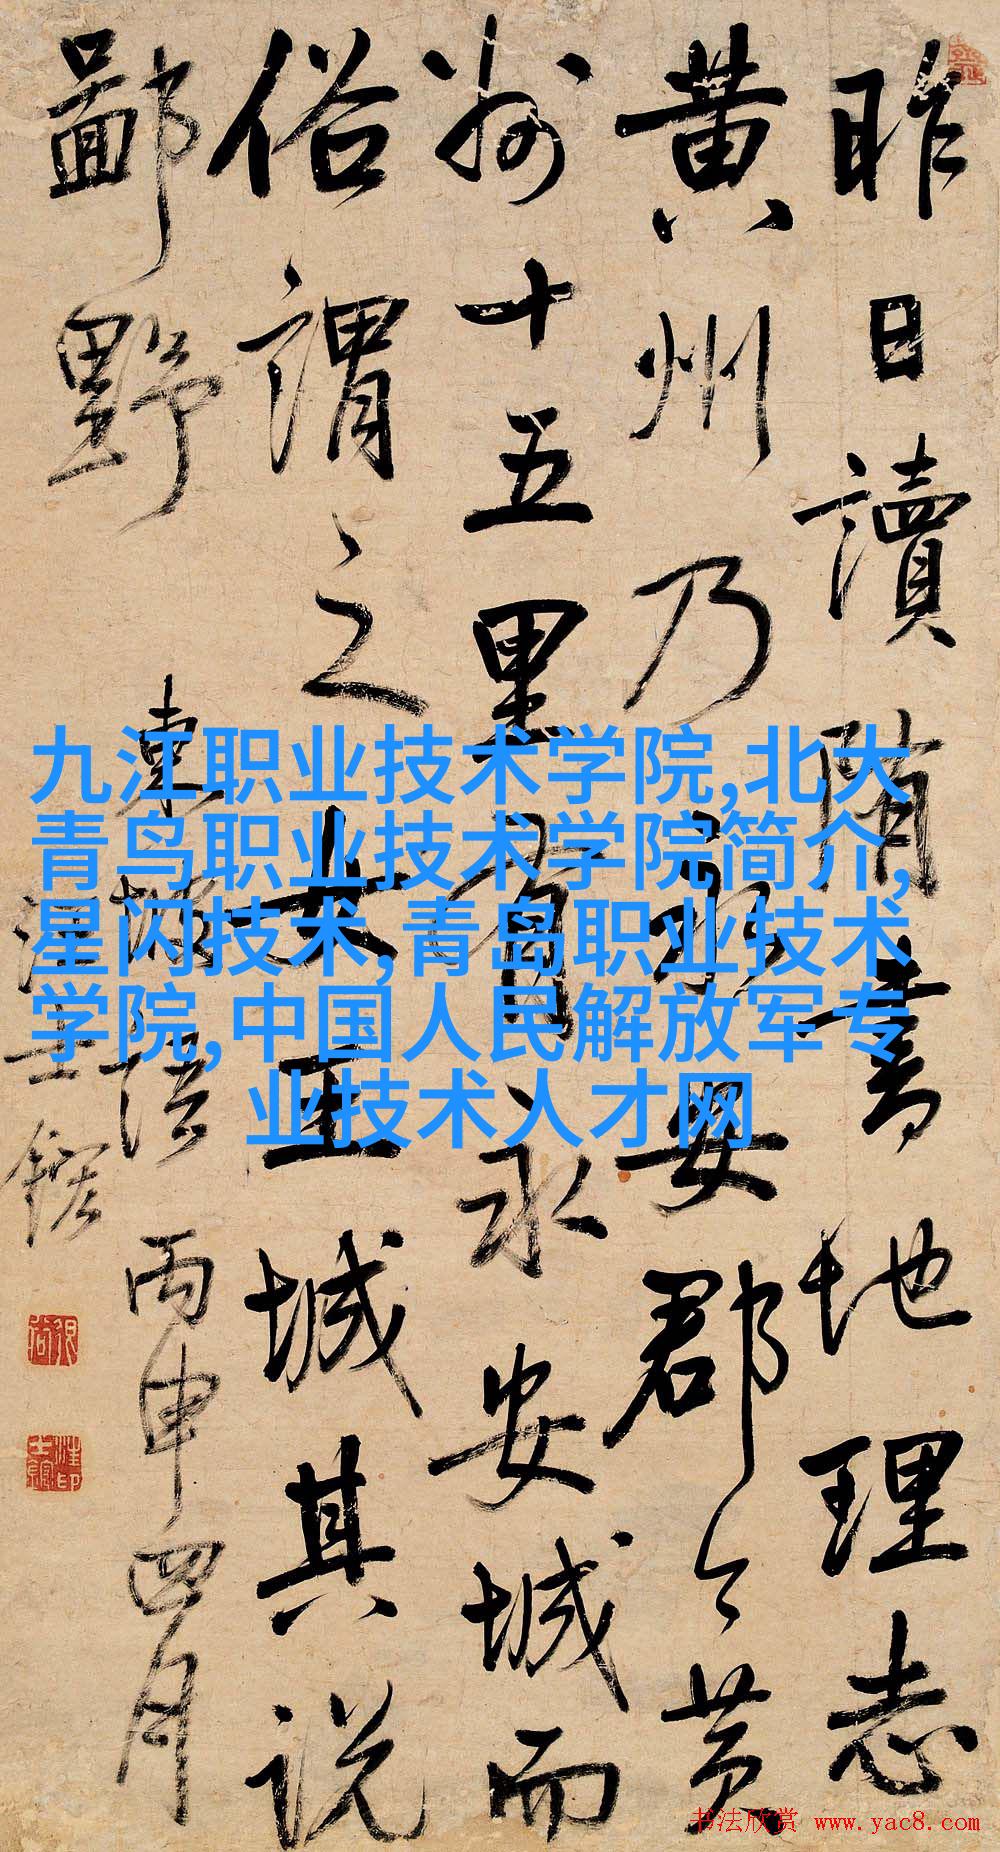 昨日讀隋書地理志
黃州乃永安郡今黃
州十五里有永安城而
俗謂之女王城其說
鄙野
東坡語 丙申四月
汪士鋐
九江职业技术学院,北大
青鸟职业技术学院简介,
星闪技术,青岛职业技术
学院,中国人民解放军专
业技术人才网
书法欣赏 www.yac8.com